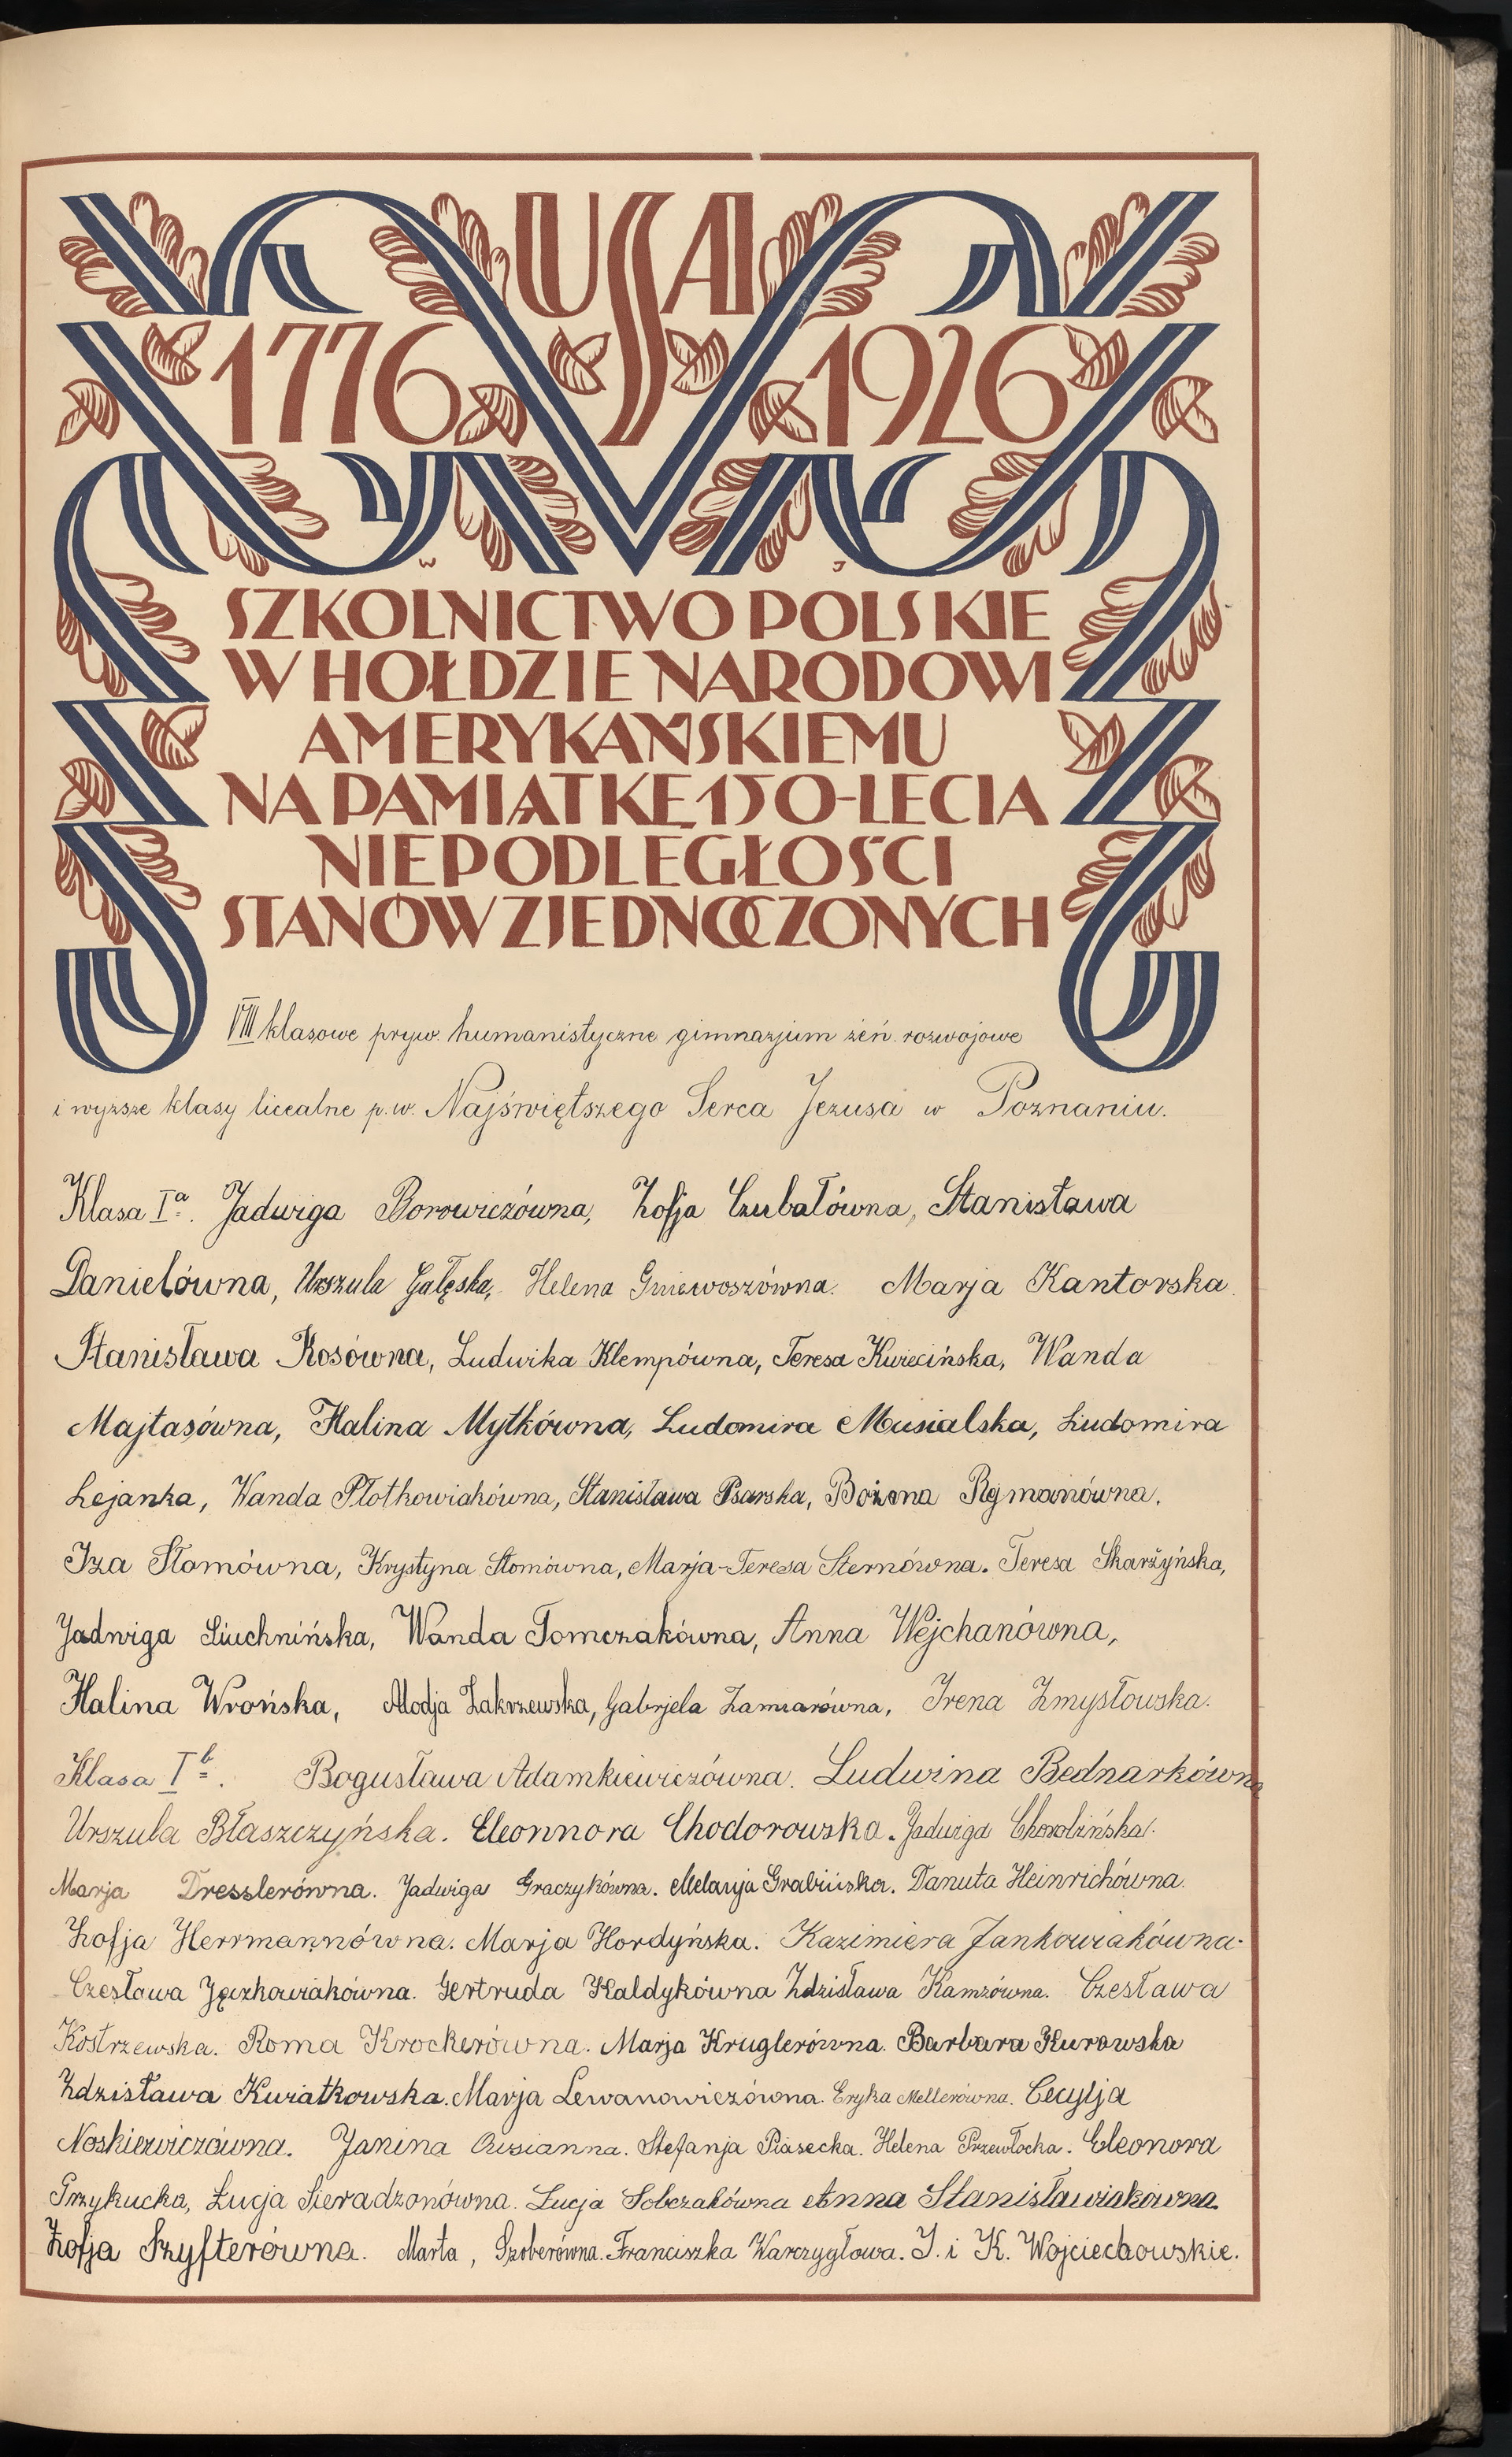 USA
1776 1926
W J
SZKOLNICTWO POLSKIE
W HOŁDZIE NARODOWI
AMERYKAŃSKIEMU
NA PAMIĄTKĘ 150-LECIA
NIEPODLEGŁOŚCI
STANÓW ZJEDNOCZONYCH
VIII klasowe pryw. humanistyczne gimnazjum żeń. rozwojowe
i wyższe klasy licealne p.w. Najświętszego Serca Jezusa w Poznaniu.
Klasa Iª. Jadwiga Borowiczówna, Zofja Czubałówna, Stanisława
Danielówna, Urszula Gałęska, Helena Gniewoszówna. Marja Kantorska.
Stanisława Kosówna, Ludwika Klempówna, Teresa Kwiecińska, Wanda
Majtasówna, Halina Mytkówna, Ludomira Musialska, Ludomira
Lejanka, Wanda Płotkowiakówna, Stanisława Psarska, Bożena Rymanówna.
Iza Słomówna, Krystyna Słomówna, Marja-Teresa Sternówna. Teresa Skarżyńska,
Jadwiga Siuchnińska, Wanda Tomczakówna, Anna Wejchanówna,
Halina Wrońska, Alodja Zakrzewska, Gabrjela Zamiarówna, Irena Zmysłowska.
Klasa Iᵇ. Bogusława Adamkiewiczówna. Ludwina Bednarkówna
Urszula Błaszczyńska. Eleonnora Chodorowska. Jadwiga
Marja Dresslerówna. Jadwiga Graczykówna. Melanja Grabińska. Danuta Heinrichówna.
Zofja Herrmannówna. Marja Hordyńska. Kazimiera Jankowiakówna.
Czesława Jęczkowiakówna. Gertruda Kaldykówna Zdzisława Kamzówna. Czesława
Kostrzewska. Roma Krockerówna. Marja Kruglerówna. Barbara Kurowska
Zdzisława Kwiatkowska. Marja Lewanowiczówna. Eryka Mellerówna. Cecylja
Noskiewiczówna. Janina Stefanja Piasecka. Helena Przewłocka. Eleonora
Przykucka, Łucja Sieradzonówna. Łucja Sobczakówna Anna Stanisławiakówna.
Zofja Szyfterówna. Marta, Szoberówna. Franciszka Warczygłowa. J. i K. Wojciechowskie.